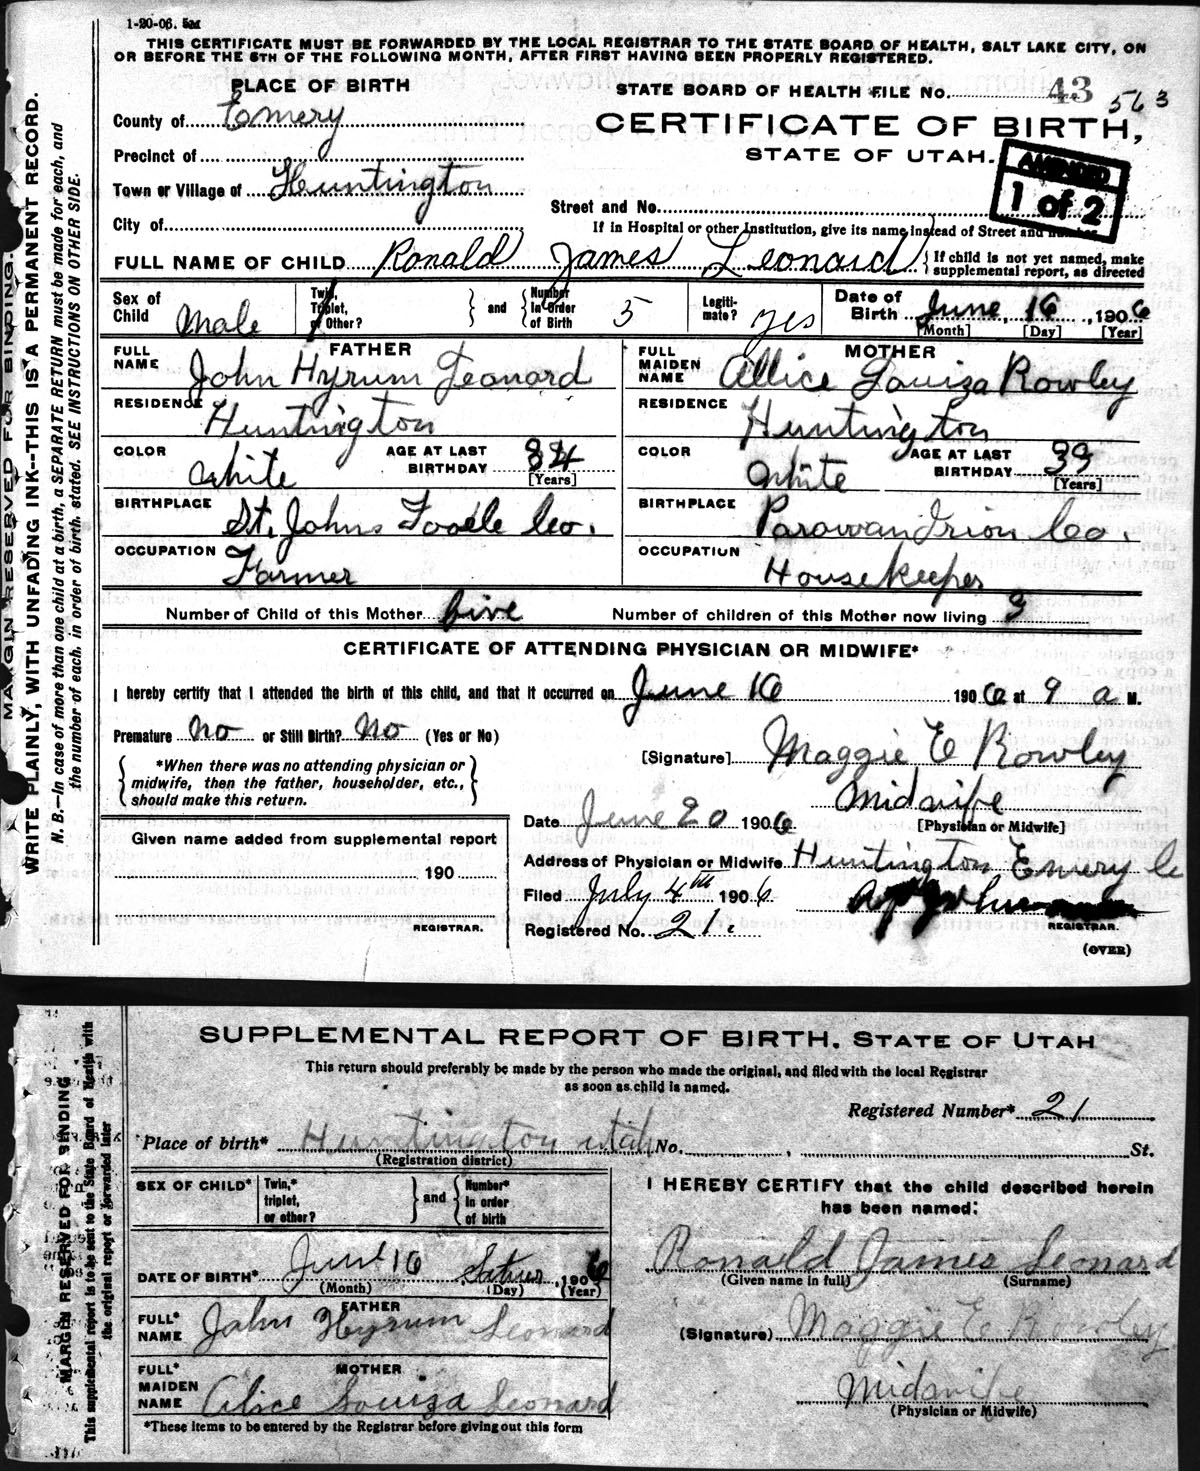 1-20-06. 5M
THIS CERTIFICATE MUST BE FORWARDED BY THE LOCAL REGISTRAR TO THE STATE BOARD OF HEALTH, SALT LAKE CITY, ON
OR BEFORE THE 5TH OF THE FOLLOWING MONTH, AFTER FIRST HAVING BEEN PROPERLY REGISTERED.
MARGIN RESERVED FOR BINDING.
WRITE PLAINLY, WITH UNFADING INK--THIS IS A PERMANENT RECORD.
N. B.--In case of more than one child at a birth, a SEPARATE RETURN must be made for each, and
the number of each, in order of birth, stated. SEE INSTRUCTIONS ON OTHER SIDE.
PLACE OF BIRTH
STATE BOARD OF HEALTH FILE No. 43 563
County of Emery
CERTIFICATE OF BIRTH,
Precinct of
STATE OF UTAH.
AMENDED
1 of 2
Town or Village of Huntington
Street and No.
City of
If in Hospital or other Institution, give its name instead of Street and number
FULL NAME OF CHILD Ronald James Leonard { If child is not yet named, make
supplemental report, as directed
Sex of Child Male
Twin, Triplet, or Other? } and { Number in Order of Birth 5
Legitimate? yes
Date of Birth June 16, 1906
[Month] [Day] [Year]
FATHER
FULL NAME John Hyrum Leonard
MOTHER
FULL MAIDEN NAME Allice Louiza Rowley
RESIDENCE Huntington
RESIDENCE Huntington
COLOR White AGE AT LAST BIRTHDAY 34 [Years]
COLOR White AGE AT LAST BIRTHDAY 33 [Years]
BIRTHPLACE St. Johns Tooele Co.
BIRTHPLACE Parowan Irion Co.
OCCUPATION Farmer
OCCUPATION Housekeeper
Number of Child of this Mother five Number of children of this Mother now living 3
CERTIFICATE OF ATTENDING PHYSICIAN OR MIDWIFE*
I hereby certify that I attended the birth of this child, and that it occurred on June 16 1906 at 9 a M.
Premature No or Still Birth? No (Yes or No)
[Signature] Maggie E Rowley
{ *When there was no attending physician or
midwife, then the father, householder, etc.,
should make this return. }
Midwife
[Physician or Midwife]
Date June 20 1906
Given name added from supplemental report
190
REGISTRAR.
Address of Physician or Midwife Huntington Emery Co
Filed July 4th 1906
REGISTRAR.
Registered No. 21.
(OVER)
SUPPLEMENTAL REPORT OF BIRTH, STATE OF UTAH
This return should preferably be made by the person who made the original, and filed with the local Registrar
as soon as child is named.
MARGIN RESERVED FOR BINDING
This supplemental report is to be sent to the State Board of Health with
the original report or forwarded later
Registered Number* 21
Place of birth* Huntington Utah No. , St.
(Registration district)
SEX OF CHILD* Twin,* triplet, or other? } and { Number* in order of birth
I HEREBY CERTIFY that the child described herein
has been named:
DATE OF BIRTH* June 16 , 1906
(Month) (Day) (Year)
Ronald James Leonard
(Given name in full) (Surname)
FATHER
FULL* NAME John Hyrum Leonard
(Signature) Maggie E Rowley
MOTHER
FULL* MAIDEN NAME Alice Louiza Leonard
Midwife
(Physician or Midwife)
*These items to be entered by the Registrar before giving out this form